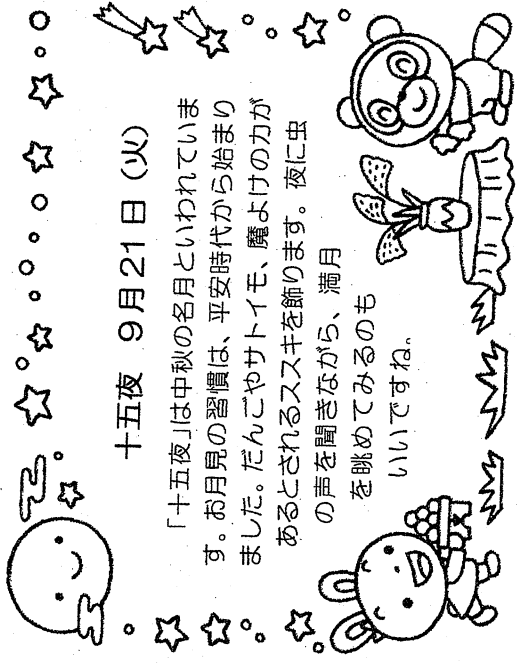 十五夜 9月21日(火)
「十五夜」は中秋の名月といわれていま
す。お月見の習慣は、平安時代から始まり
ました。だんごやサトイモ、魔よけの力が
あるとされるススキを飾ります。夜に虫
の声を聞きながら、満月
を眺めてみるのも
いいですね。